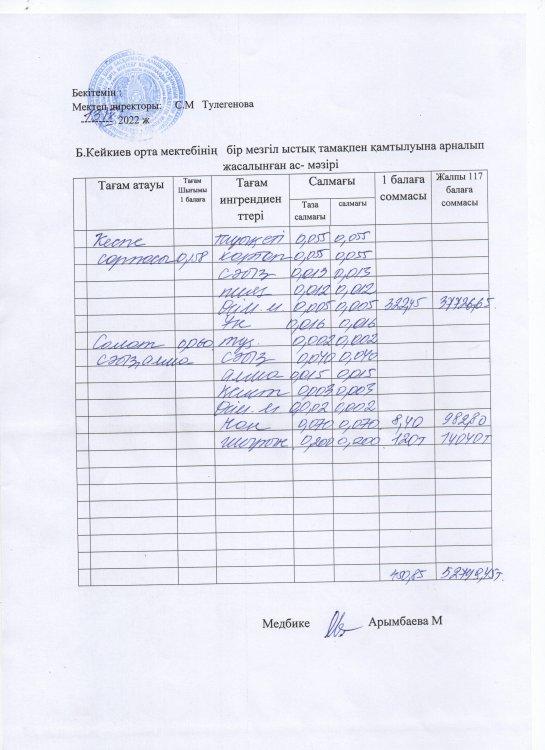 Бекітемін :
Мектеп директоры: С.М Тулегенова
2022 ж
Б.Кейкиев орта мектебінің бір мезгіл ыстық тамақпен қамтылуына арналып
жасалынған ас- мәзірі
Тағам атауы Тағам Шығымы 1 балаға Тағам ингрендиен ттері Салмағы 1 балаға соммасы Жалпы 117 балаға соммасы
Таза салмағы салмағы
Кеспе тауық еті 0,055 0,055
сорпасы 0,158 картоп 0,05 0,055
сәбіз 0,013 0,013
пияз 0,012 0,012
Өсім. м 0,005 0,005 322,45 37726,65
Ұн 0,016 0,016
Салат 0,060 тұз 0,002 0,002
сәбіз, алма сәбіз 0,040 0,040
алма 0,015 0,015
0,003 0,003
Өсім. м 0,002 0,002
Нан 0,070 0,070 8,40 982,80
шырын 0,200 0,200 120т 14040т
450,85 52749,45т.
Медбике Арымбаева М